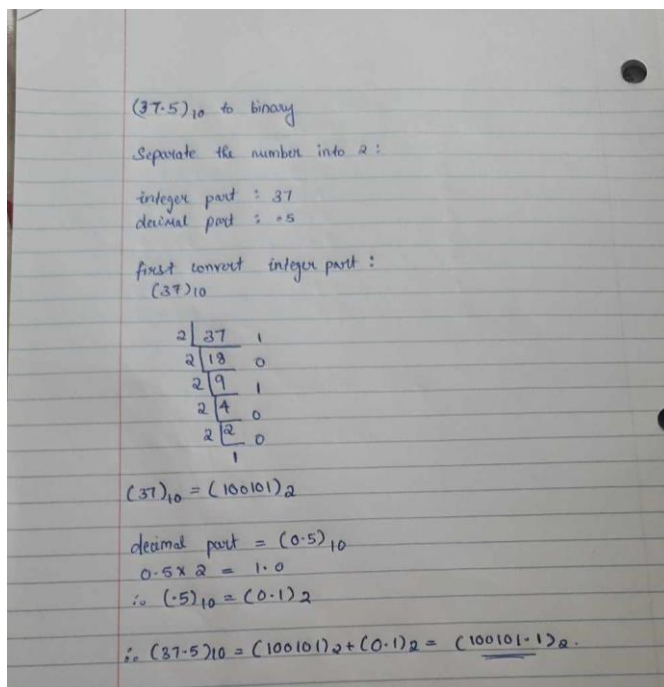 (37.5)10 to binary
Separate the number into 2:
integer part : 37
decimal part : .5
first convert integer part :
(37)10
2 37 1
2 18 0
2 9 1
2 4 0
2 2 0
1
(37)10 = (100101)2
decimal part = (0.5)10
0.5 x 2 = 1.0
∴ (.5)10 = (0.1)2
∴ (37.5)10 = (100101)2 + (0.1)2 = (100101.1)2.